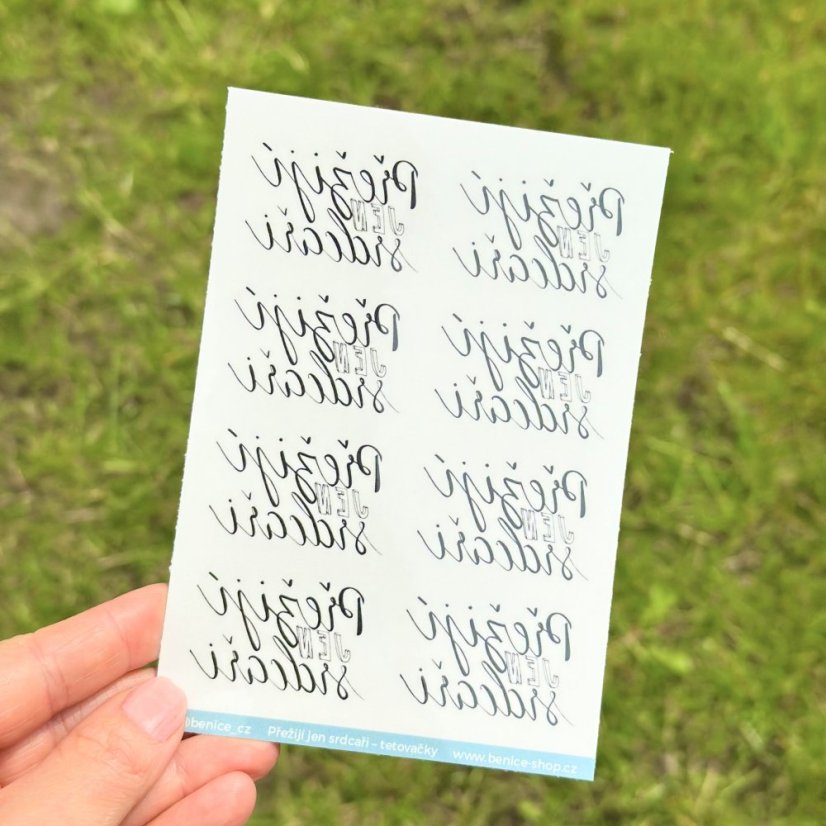 Přežijí
JEN
srdcaři
Přežijí
JEN
srdcaři
Přežijí
JEN
srdcaři
Přežijí
JEN
srdcaři
Přežijí
JEN
srdcaři
Přežijí
JEN
srdcaři
Přežijí
JEN
srdcaři
Přežijí
JEN
srdcaři
@benice_cz Přežijí jen srdcaři - tetovačky www.benice-shop.cz